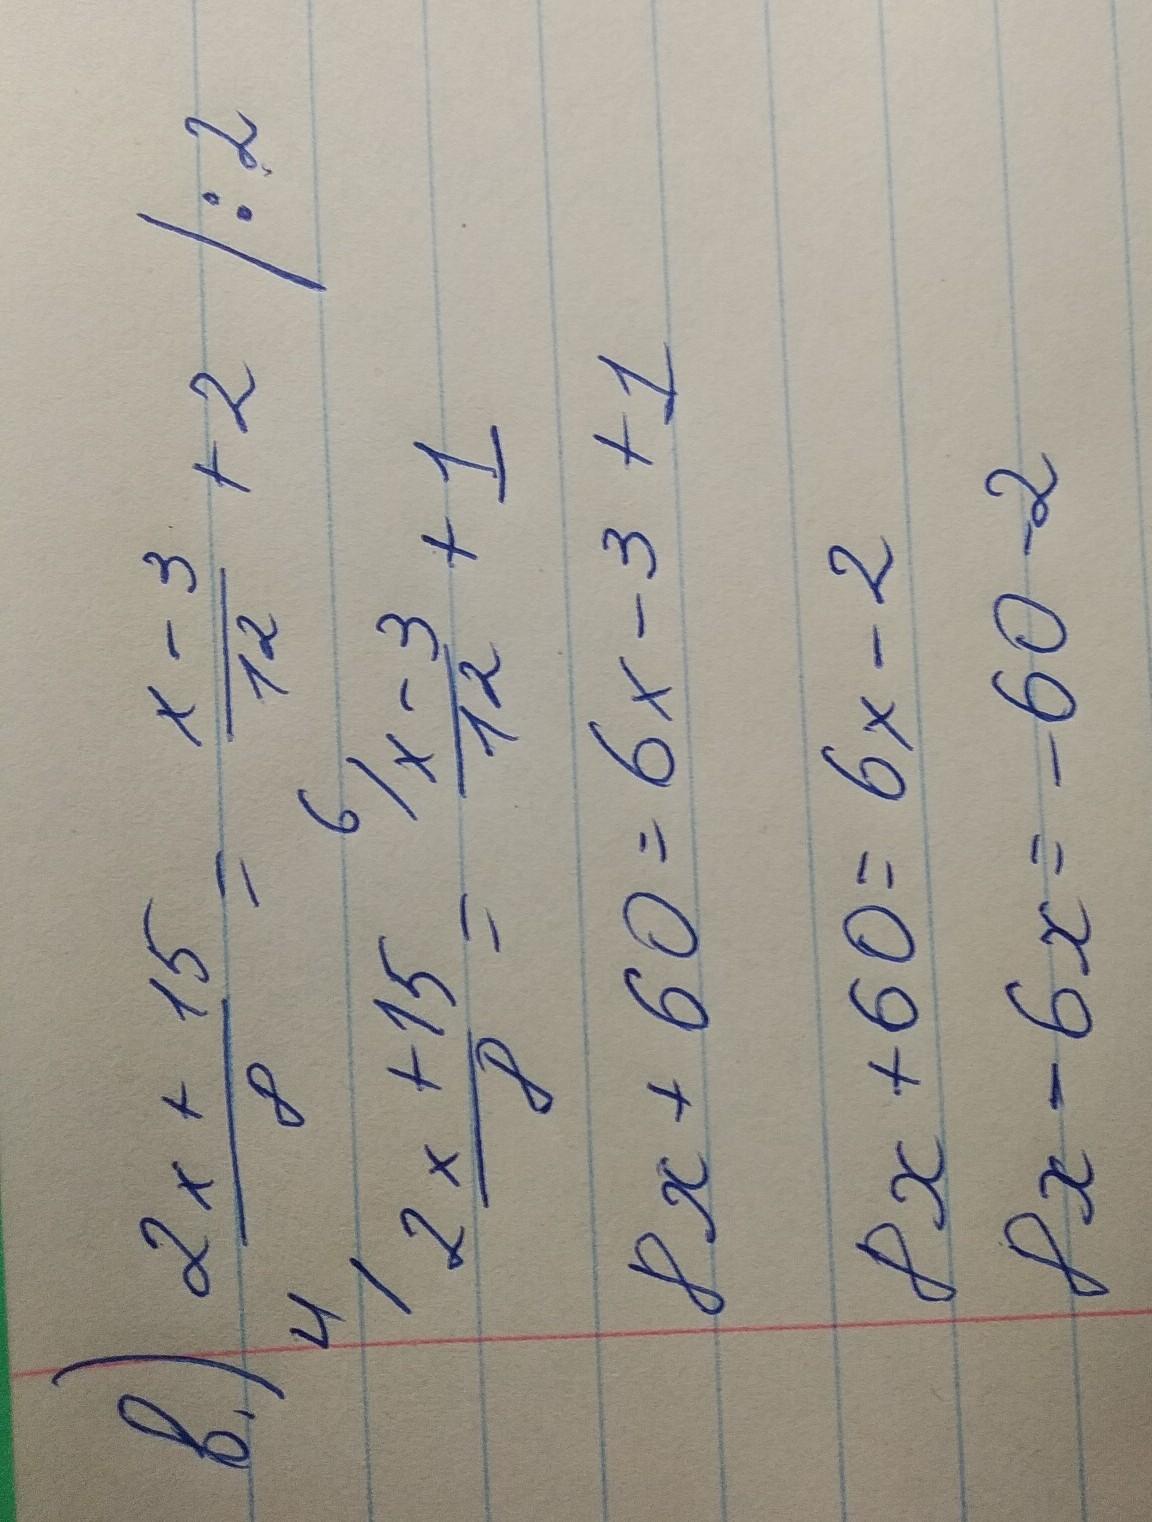 в.) 2x + 15 / 8 = x - 3 / 12 + 2 / : 2
4/ 2x + 15 / 8 = 6/ x - 3 / 12 + 1
8x + 60 = 6x - 3 + 1
8x + 60 = 6x - 2
8x - 6x = - 60 - 2